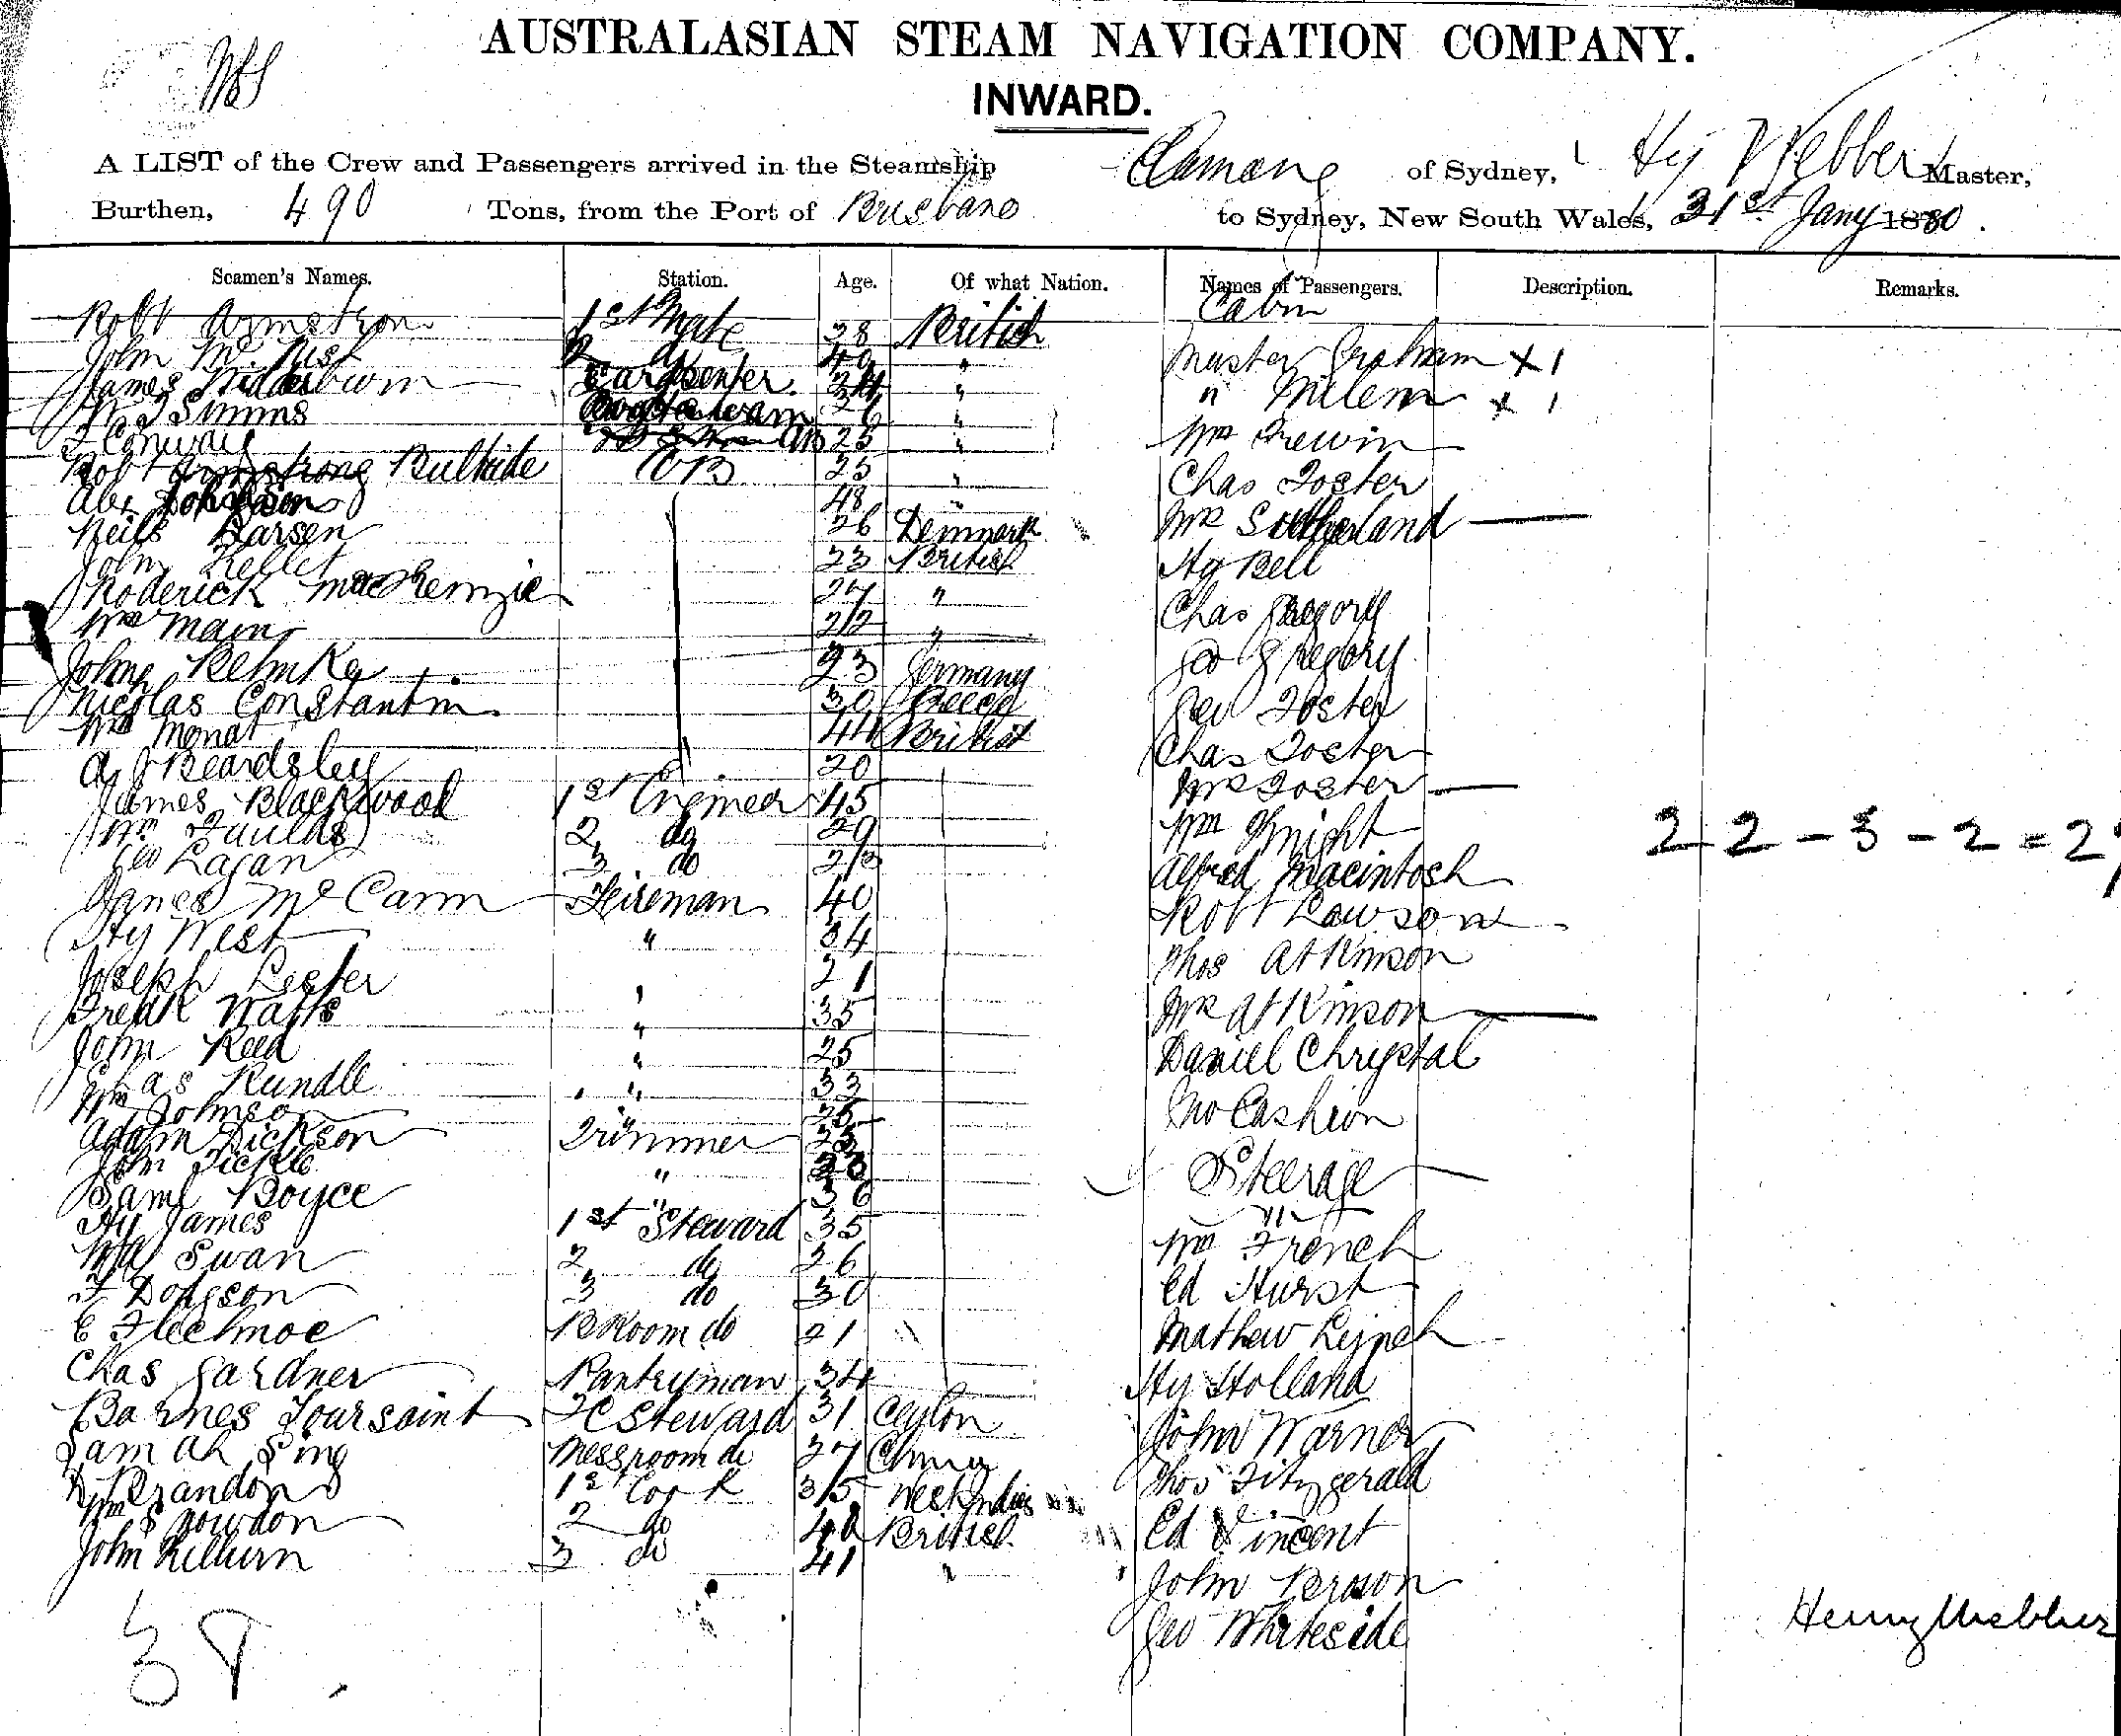 AUSTRALASIAN STEAM NAVIGATION COMPANY.
INWARD.
A LIST of the Crew and Passengers arrived in the Steamship of Sydney, Hy Webber Master,
Burthen, 490 Tons, from the Port of Brisbane to Sydney, New South Wales, 31st Jany 1880.
Seamen's Names. Station. Age. Of what Nation. Names of Passengers. Description. Remarks.
Cabin
Robt Armstron 1st Mate 28 British
John Mc 2 do 40 "
Master Graham x 1
James Carpenter 34 "
" Milem x 1
Simms 26 "
J Conway 25 "
Wm Frewin
Robt Armstrong Bulkide OB 25 "
Chas Foster
Alex Johnson 48 "
Neils Larsen 26 Denmark
Mrs Sutherland
John Kellet 23 British
Hy Bell
Roderick MacKenzie 27 "
Chas Gregory
Wm Main 22 "
Geo Gregory
John Relmke 23 Germany
Nicolas Constantin 30 Greece
Geo Foster
Wm Monat 44 British
Chas Foster
A J Beardsley 20
Mrs Foster
James Blackwood 1st Engineer 45
Wm Faulds 2 do 29
Wm Knight 2 2 - 3 - 2 = 2
Geo Lagan 3 do 23
Alfred Macintosh
James McCann Feireman 40
Robt Lawson
Hy West " 34
Thos Atkinson
Joseph Lester " 21
Fredk Watts " 35
Mrs Atkinson
John Reed " 25
Daniel Chrystal
Chas Rundle " 33
Wm Johnson " 25
Jno Cashion
Adam Dickson Trimmer 25
John Tickle " 23
Steerage
Saml Boyce " 36
Hy James 1st Steward 35
Wm Swan 2 do 26
Wm French
F Dodgson 3 do 30
Ed Hurst
C Flechmoe BRoom do 21
Mathew Lynch
Chas Gardner Pantryman 34
Hy Holland
Barnes Toursaint FC Steward 31 Ceylon
John Warner
Sam Ah Sing Messroom do 27 China
Thos Fitzgerald
Brandon 1st Cook 35 West Indies
Wm Snowdon 2 do 40 British
Ed Vincent
John Kilburn 3 do 41 "
John Brown
Geo Whiteside
Henry Webber